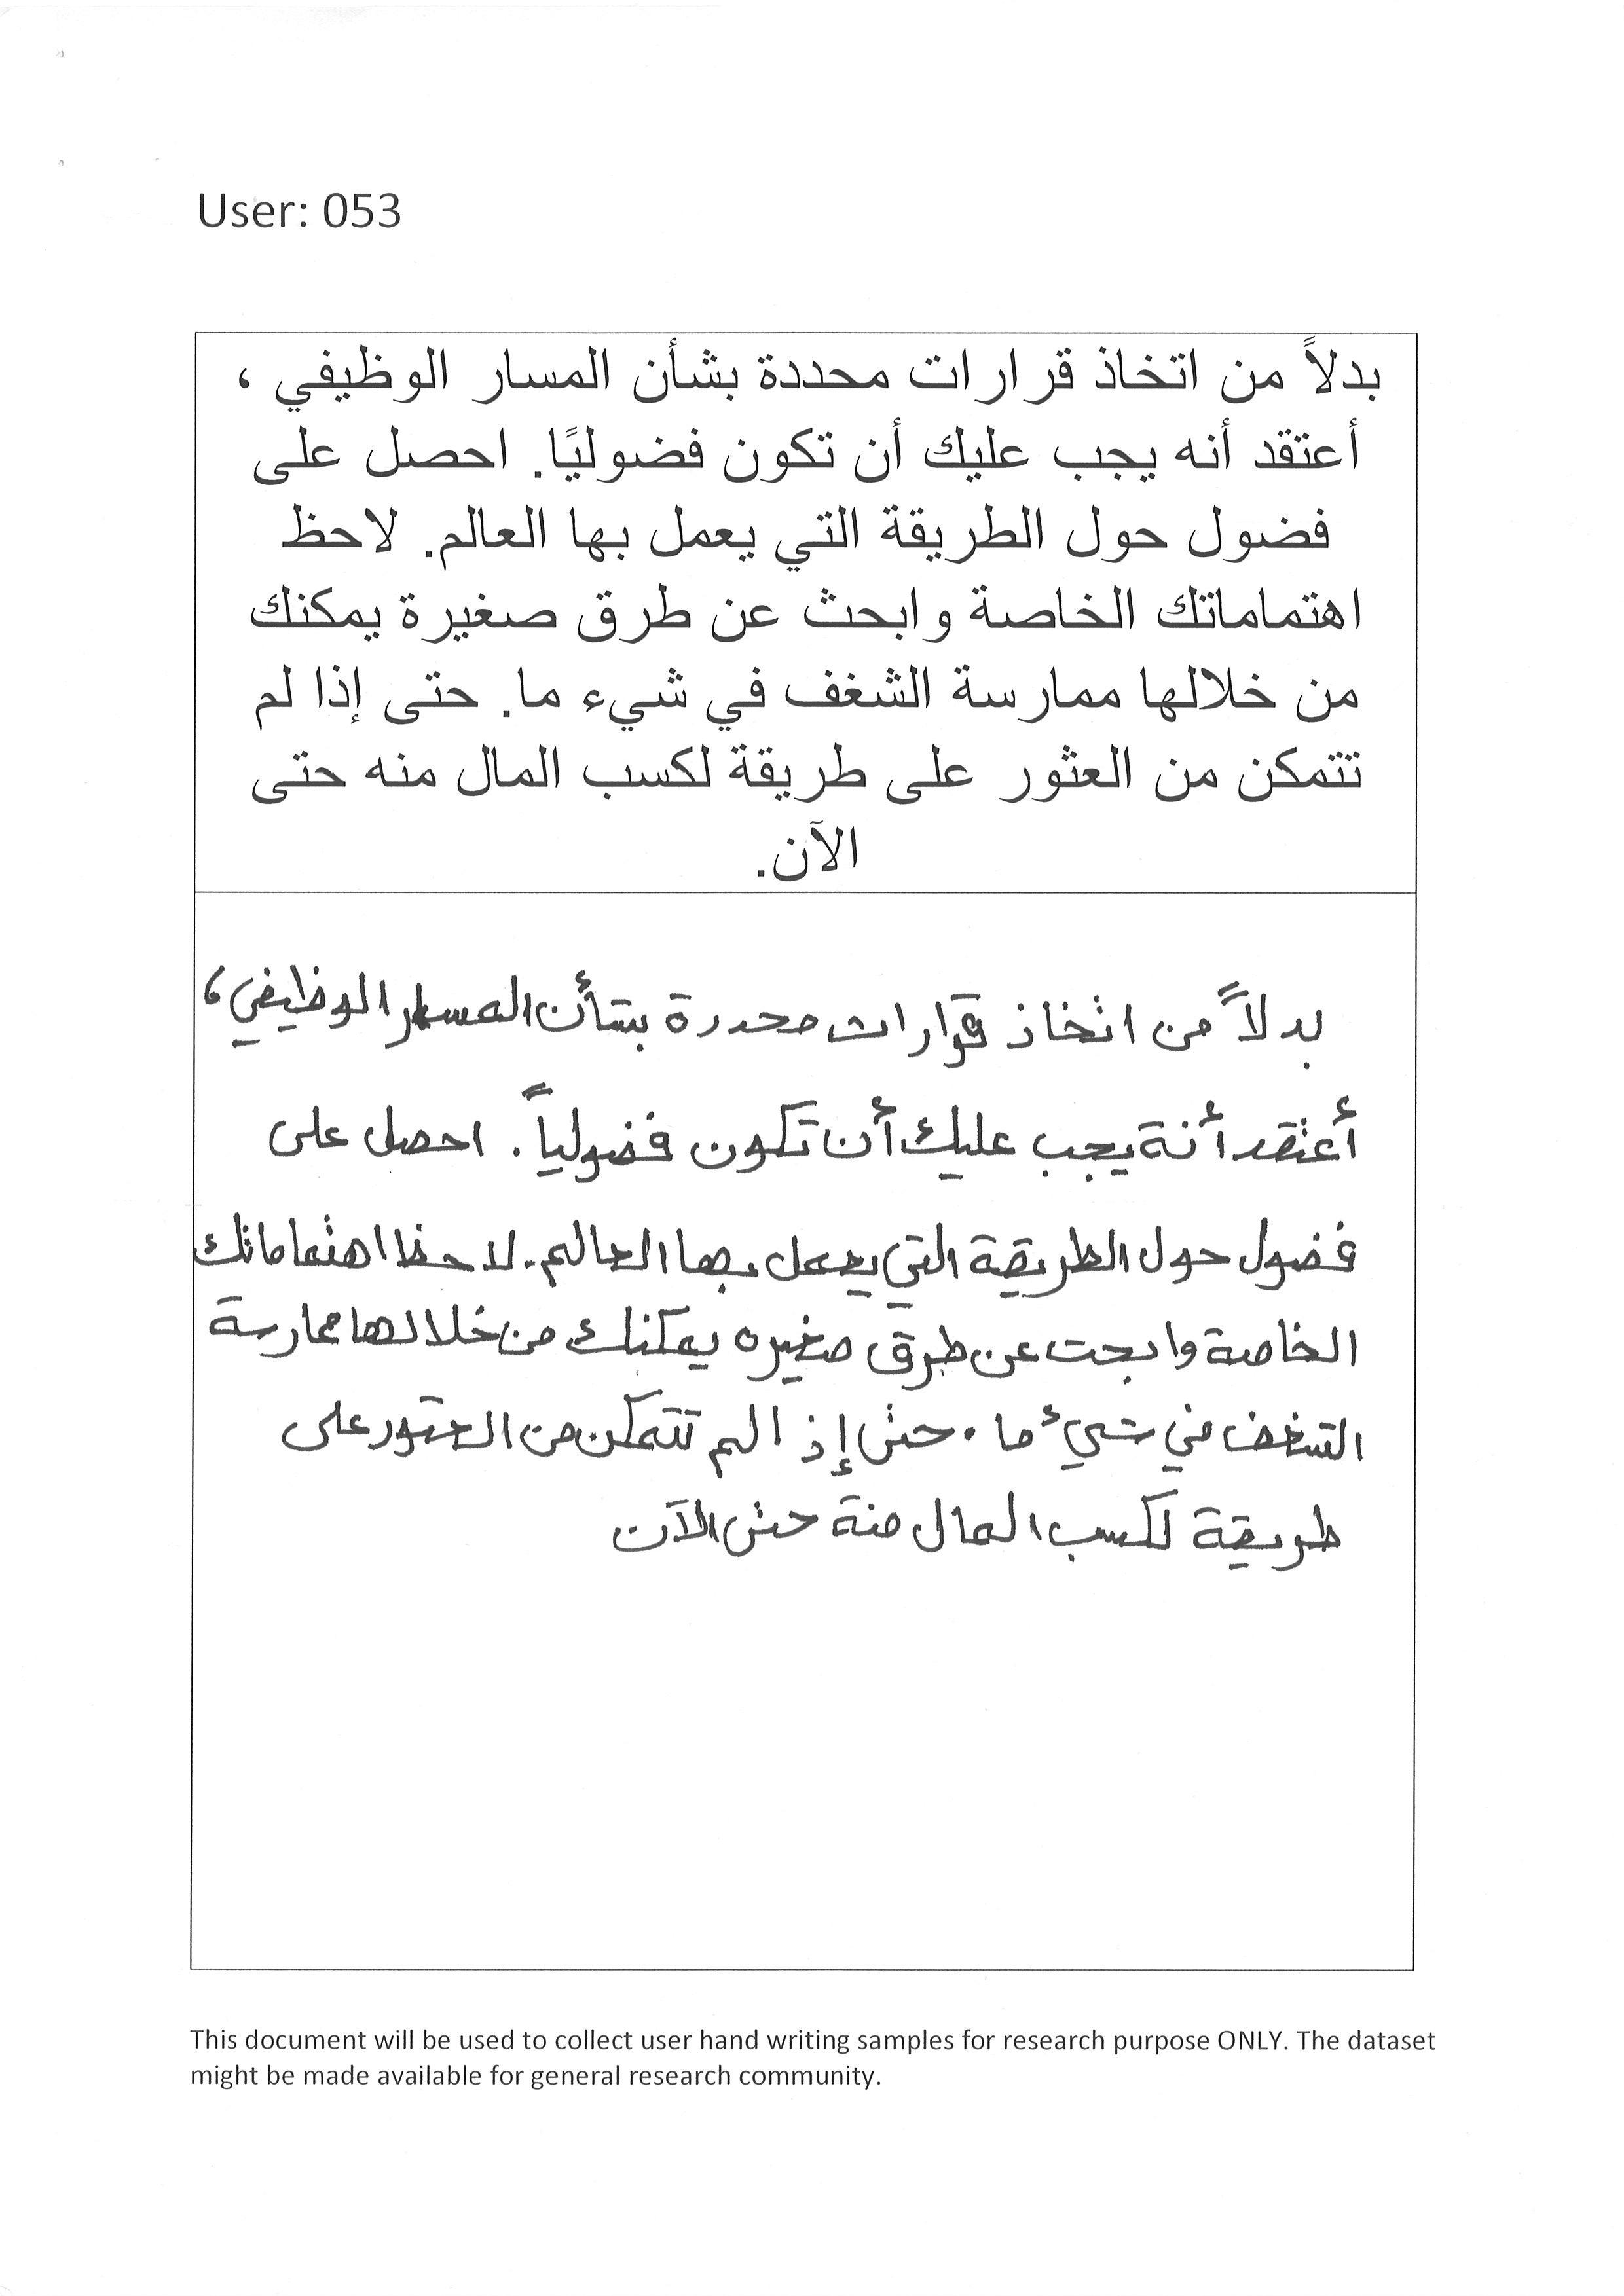 User: 053
بدلاً من اتخاذ قرارات محددة بشأن المسار الوظيفي ،
أعتقد أنه يجب عليك أن تكون فضوليًا. احصل على
فضول حول الطريقة التي يعمل بها العالم. لاحظ
اهتماماتك الخاصة وابحث عن طرق صغيرة يمكنك
من خلالها ممارسة الشغف في شيء ما. حتى إذا لم
تتمكن من العثور على طريقة لكسب المال منه حتى
الآن.
بدلاً من اتخاذ قرارات محددة بشأن المسار الوظيفي،
أعتقد أنة يجب عليك أن تكون فضولياً. احصل على
فضول حول الطريقة التي يعمل بها العالم. لاحظ اهتماماتك
الخاصة وابحث عن طرق صغيره يمكنك من خلالها ممارسة
الشغف في شيء ما. حتى إذا لم تتمكن من العثور على
طريقة لكسب المال منة حتى الآن
This document will be used to collect user hand writing samples for research purpose ONLY. The dataset
might be made available for general research community.